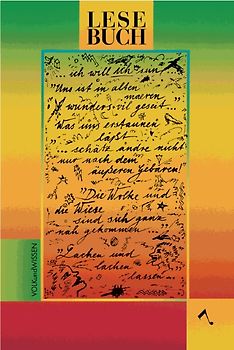 LESE
BUCH
...ich will ich sun
"Uns ist in alten
maeren
wunders vil geseit..."
Was uns erstaunen
läßt
... schätz andre nicht
nur nach dem
äußeren Gebaren!
"Die Wolke und
die Wiese
sind sich ganz
nah gekommen"
Lachen und
lachen
lassen...
VOLKundWISSEN